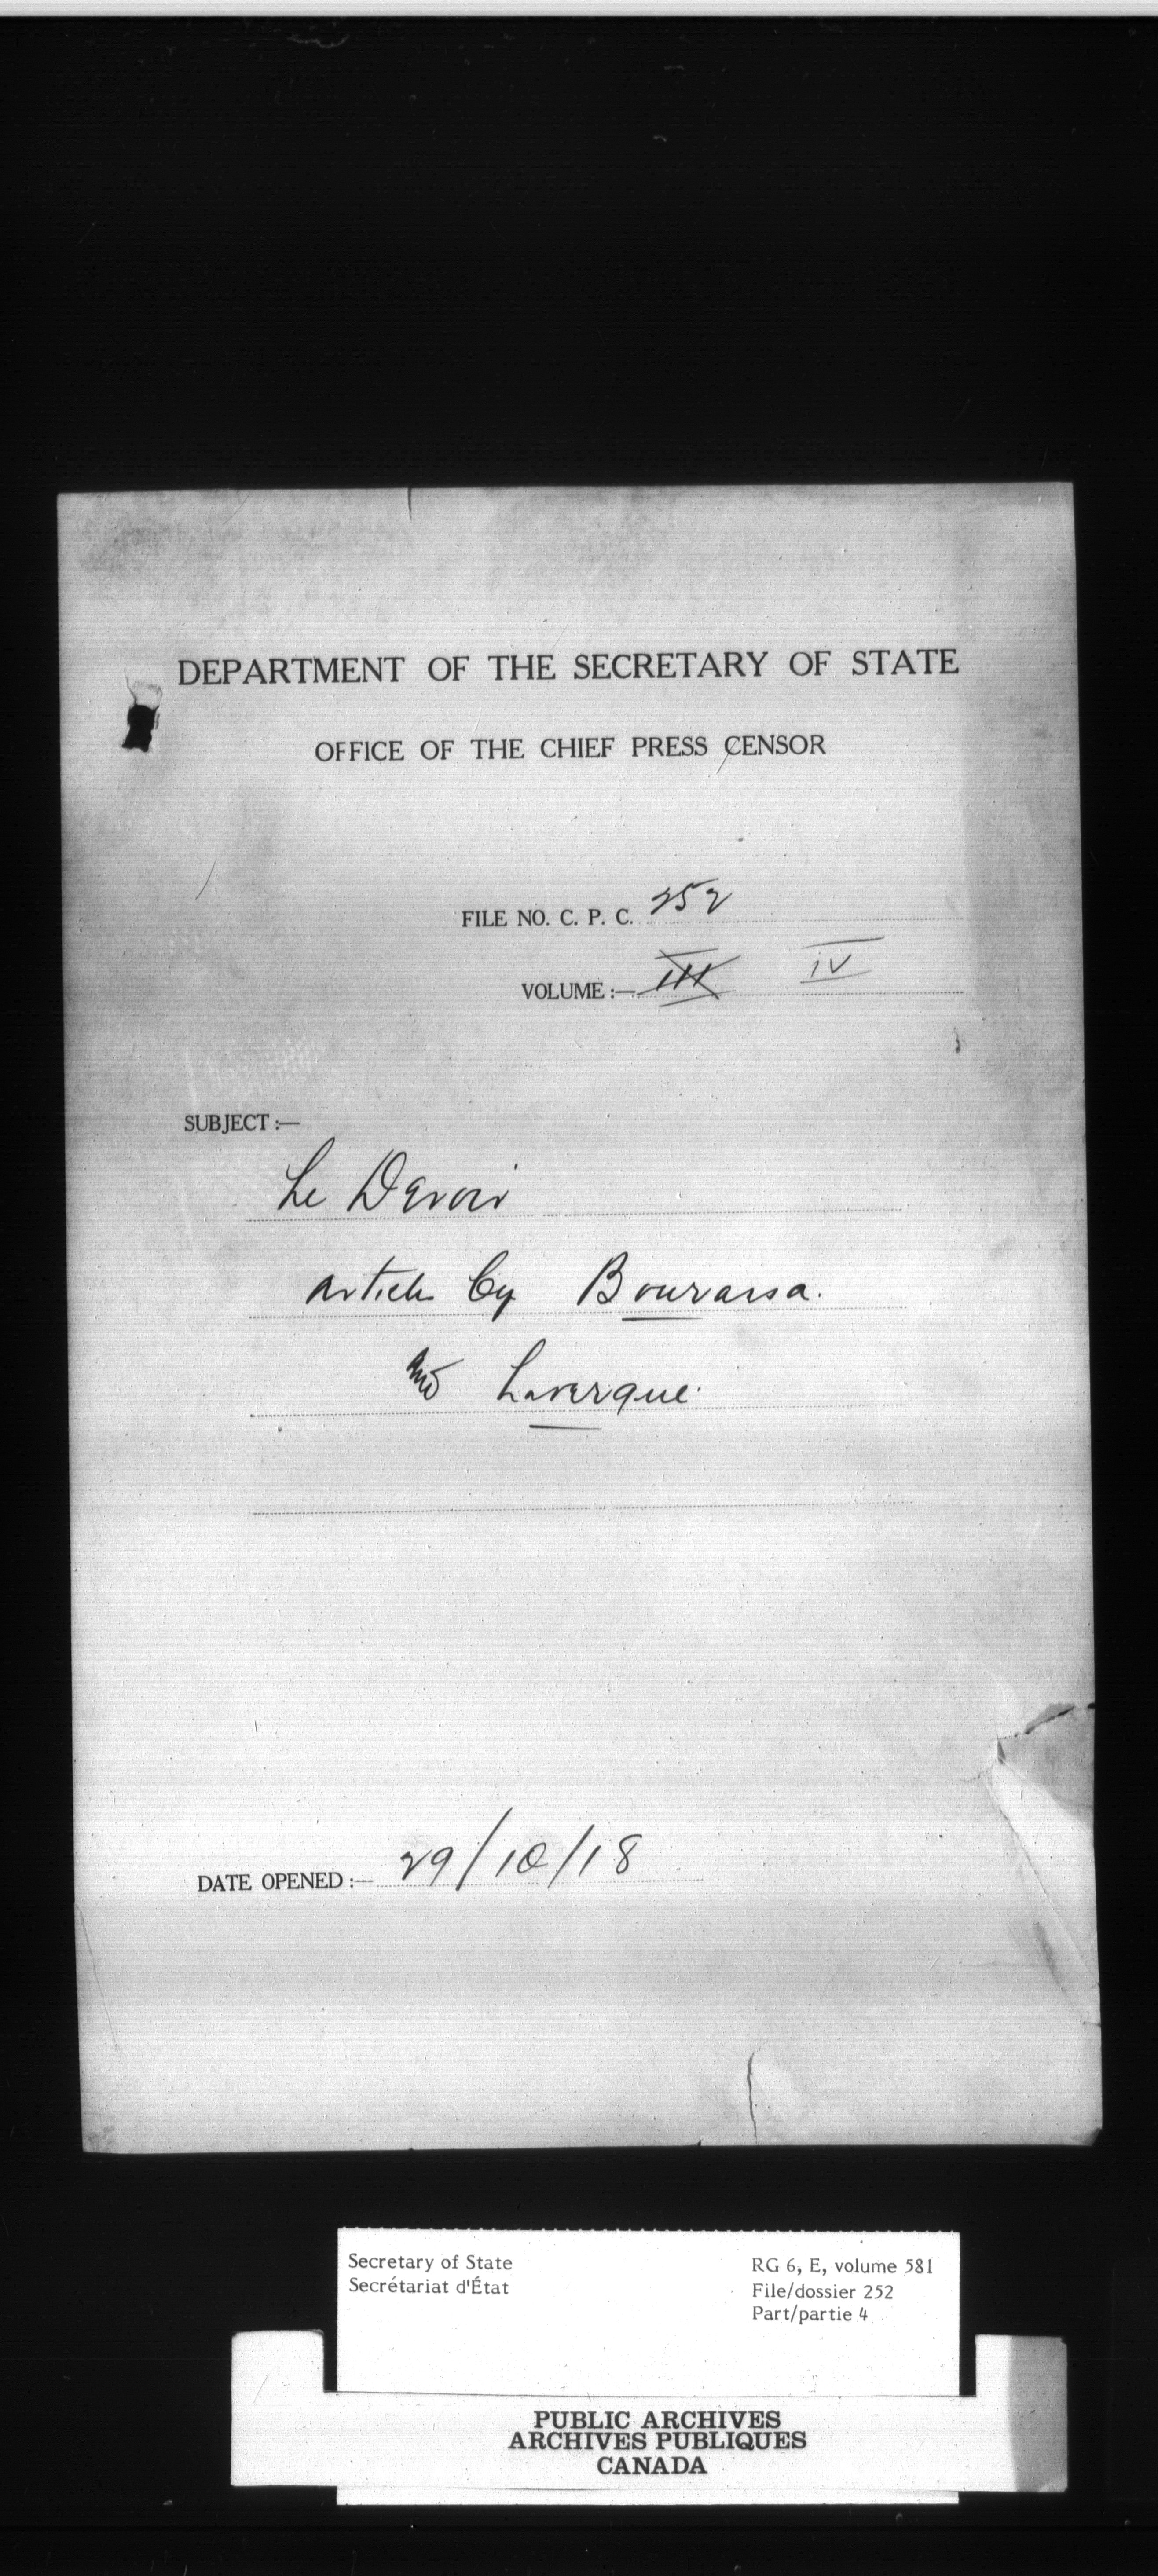 DEPARTMENT OF THE SECRETARY OF STATE
OFFICE OF THE CHIEF PRESS CENSOR
FILE NO. C. P. C. 252
VOLUME :— III IV
SUBJECT :—
Le Devoir
Article by Bourassa.
and Lavergne.
DATE OPENED :— 29/10/18
Secretary of State
Secrétariat d'État
RG 6, E, volume 581
File/dossier 252
Part/partie 4
PUBLIC ARCHIVES
ARCHIVES PUBLIQUES
CANADA